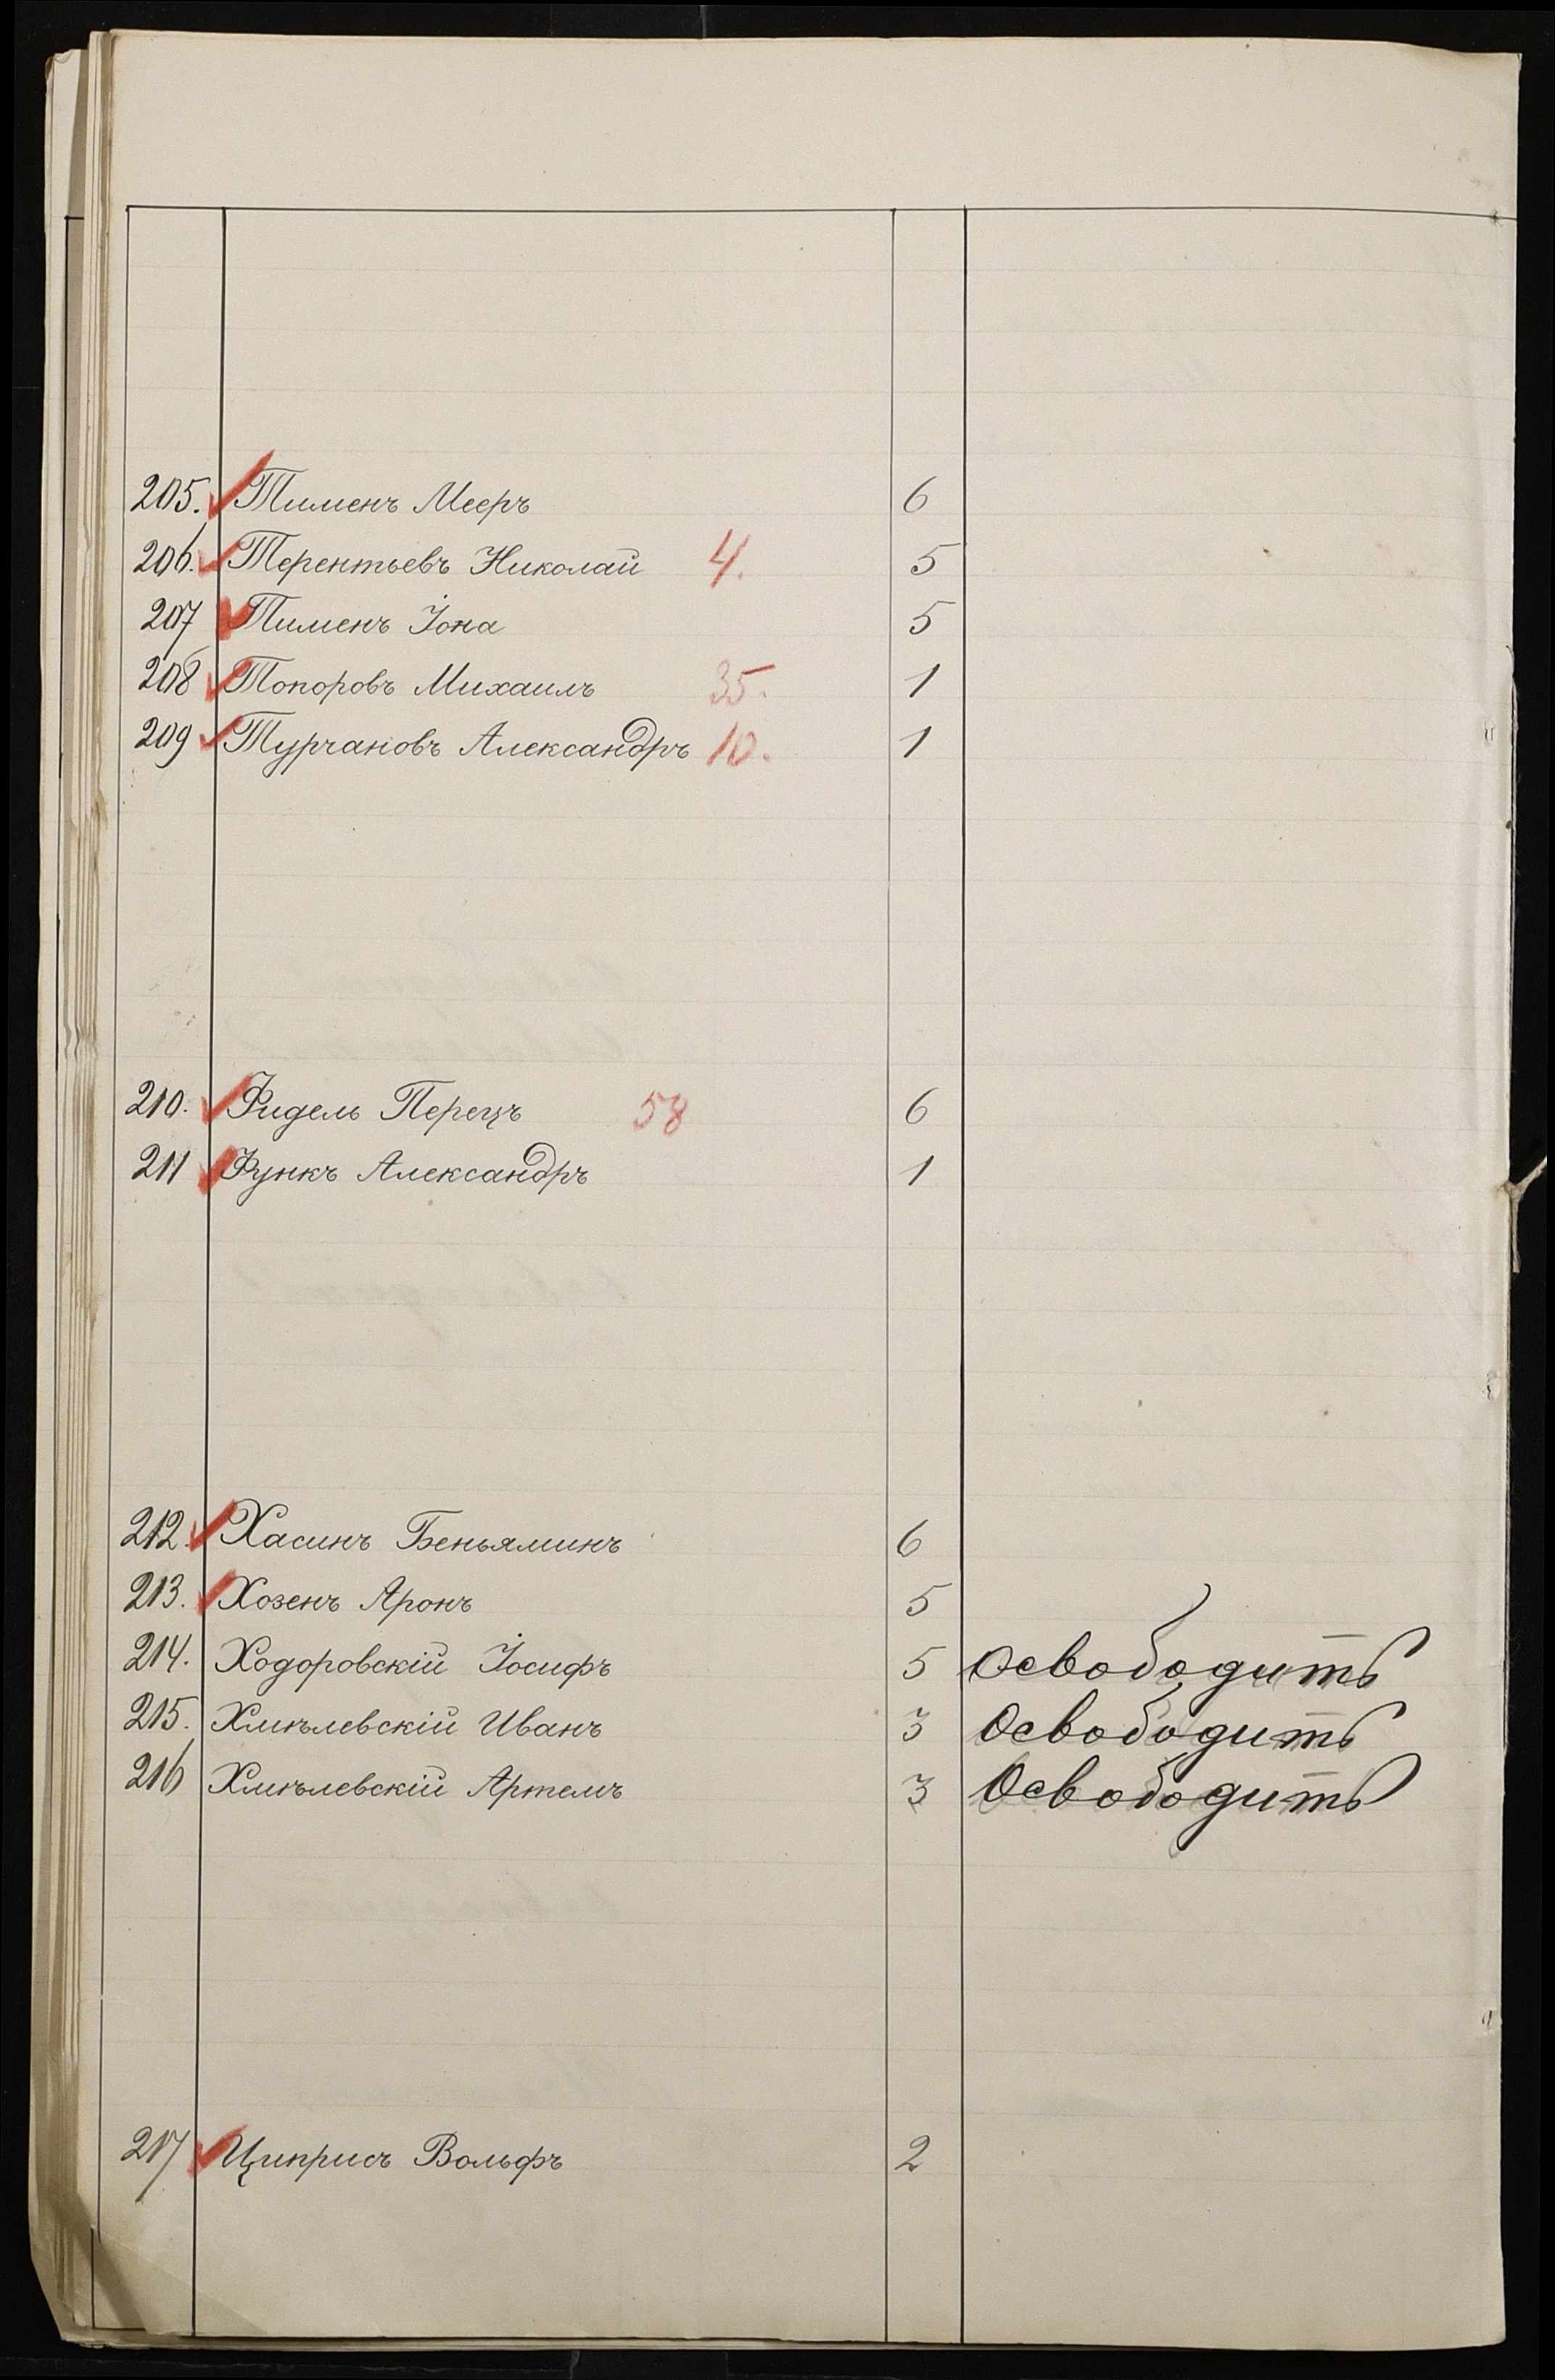 205. Тименъ Мееръ 6
206. Терентьевъ Николай 4. 5
207 Тименъ Іона 5
208 Топоровъ Михаилъ 35. 1
209 Турчановъ Александръ 10. 1
210. Фидель Перецъ 58 6
211 Функъ Александръ 1
212. Хасинъ Беньяминъ 6
213. Хозенъ Аронъ 5
214. Ходоровскій Іосифъ 5 Освободить
215. Хмѣлевскій Иванъ 3 Освободить
216 Хмѣлевскій Артемъ 3 Освободить
217 Циприсъ Вольфъ 2